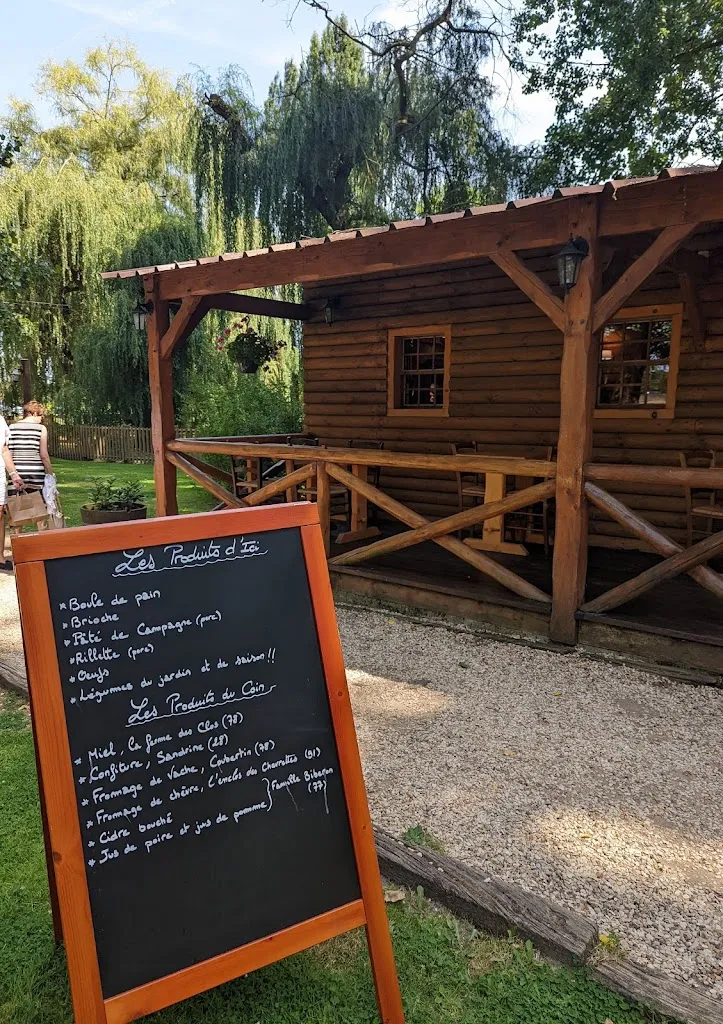 Les Produits d'Ici
* Boule de pain
* Brioche
* Pâté de Campagne (porc)
* Rillette (porc)
* Oeufs
* Légumes du jardin et de saison !!
Les Produits du Coin
* Miel, la ferme des Clos (78)
* Confiture, Sandrine (28)
* Fromage de Vache, Coubertin (78)
* Fromage de chèvre, l'enclos des Charrottes (91)
* Cidre bouché
* Jus de poire et jus de pomme } Famille Biberon (77)